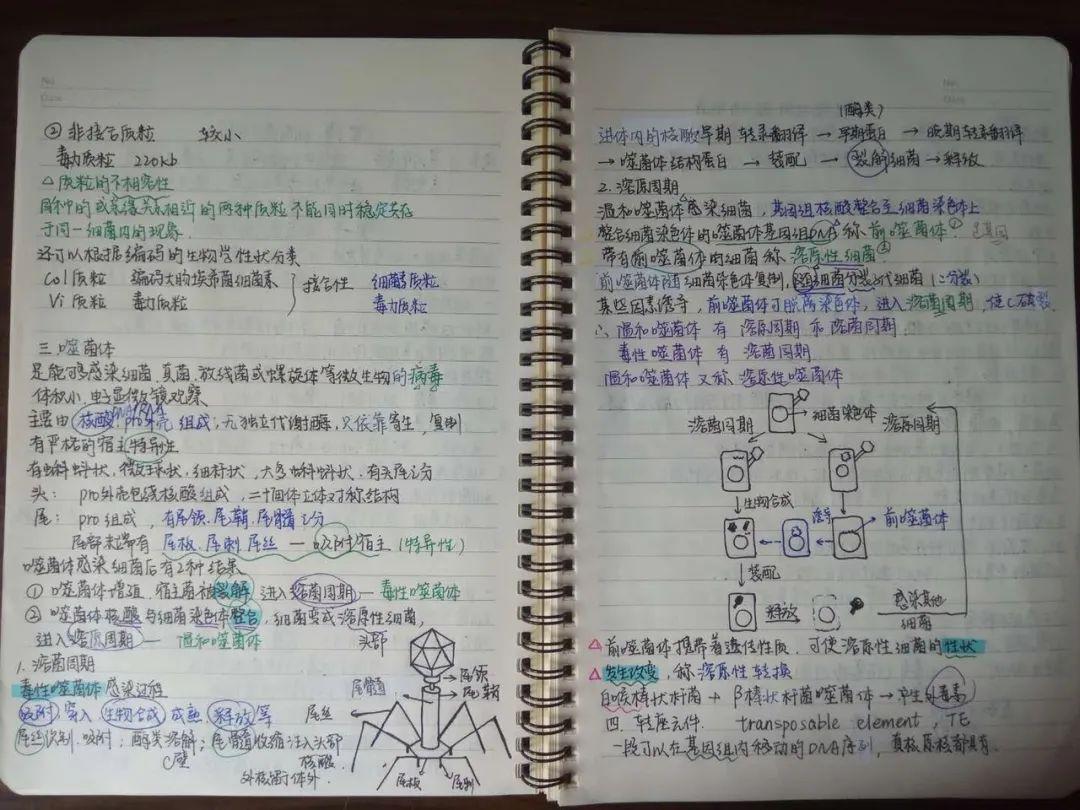 ② 非接合质粒 较小
毒力质粒 220kb
△ 质粒的不相容性
同种的或亲缘关系相近的两种质粒不能同时稳定存在
于同一细菌内的现象.
还可以根据编码的生物学性状分类
Col质粒 编码大肠埃希菌细菌素
Vi 质粒 毒力质粒
接合性 细菌素质粒
毒力质粒
三. 噬菌体
是能够感染细菌.真菌.放线菌或螺旋体等微生物的病毒
体积小,电子显微镜观察
DNA/RNA
主要由核酸.pro外壳 组成,无独立代谢酶,只依靠寄生,复制
有严格的宿主特异性
有蝌蚪状,微球状,细杆状,大多蝌蚪状.有头尾之分
头: pro外壳包绕核酸组成,二十面体立体对称结构
尾: pro组成,有尾领.尾鞘.尾髓之分
尾部末端有 尾板.尾刺.尾丝 — 吸附宿主 (特异性)
噬菌体感染细菌后有2种结果
① 噬菌体增殖,宿主菌被裂解 进入溶菌周期 — 毒性噬菌体
② 噬菌体核酸与细菌染色体整合,细菌变成溶原性细菌,
进入溶原周期 — 温和噬菌体
头部
1. 溶菌周期
毒性噬菌体感染过程
吸附,穿入,生物合成,成熟,释放等
尾丝识别.吸附;酶类溶解;尾髓收缩注入头部
C壁 核酸.
外壳留于体外.
尾领
尾鞘
尾髓
尾丝
尾板 尾刺
(酶类)
进体内的核酸早期转录翻译 → 早期蛋白 → 晚期转录翻译
→ 噬菌体结构蛋白 → 装配 → 裂解细菌 → 释放
2. 溶原周期
温和噬菌体感染细菌,基因组核酸整合至细菌染色体上
整合细菌染色体的噬菌体基因组DNA称前噬菌体①
带有前噬菌体的细菌称溶原性细菌②
前噬菌体随细菌染色体复制,随细菌分裂子代细菌(二分裂)
某些因素诱导,前噬菌体可脱离染色体,进入溶菌周期,使C破裂.
∴ 温和噬菌体 有 溶原周期 和 溶菌周期.
毒性噬菌体 有 溶菌周期
温和噬菌体 又称 溶原性噬菌体
细菌染色体
溶菌周期 溶原周期
生物合成
诱导 前噬菌体
装配
释放 感染其他
细菌
△ 前噬菌体携带着遗传性质,可使溶原性细菌的性状
△ 发生改变,称溶原性转换
白喉棒状杆菌 + β棒状杆菌噬菌体 → 产生外毒素
四. 转座元件. transposable element, TE
一段可以在基因组内移动的DNA序列,真核原核都具有.